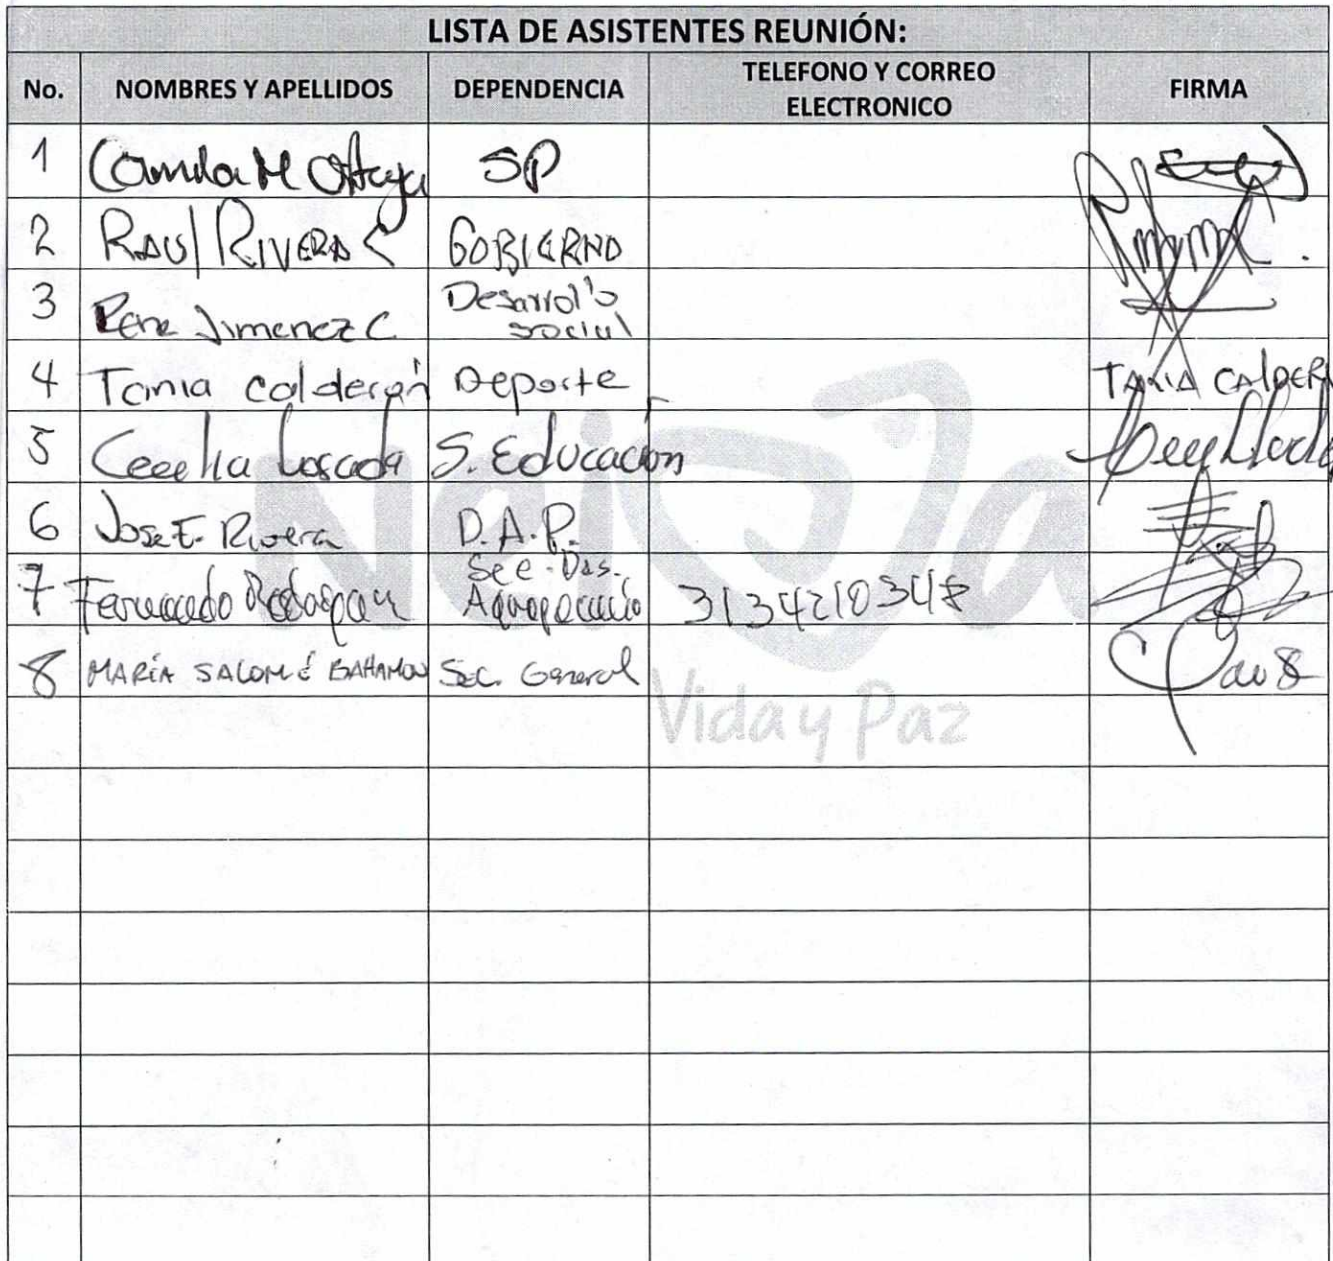 LISTA DE ASISTENTES REUNIÓN:
No. NOMBRES Y APELLIDOS DEPENDENCIA TELEFONO Y CORREO ELECTRONICO FIRMA
1 Camila M Ortega SP
2 RAUL RIVERA C GOBIERNO
3 Rene Jimenez C Desarrollo social
4 Tania calderón Deporte TANIA CALDER
5 Cecilia Losada S. Educación
6 Jose E. Rivera D.A.P.
7 Fernando Sec. Des. Agropecuario 3134210348
8 MARÍA SALOMÉ BAHAMON Sec. General
Neiva
Vida y Paz